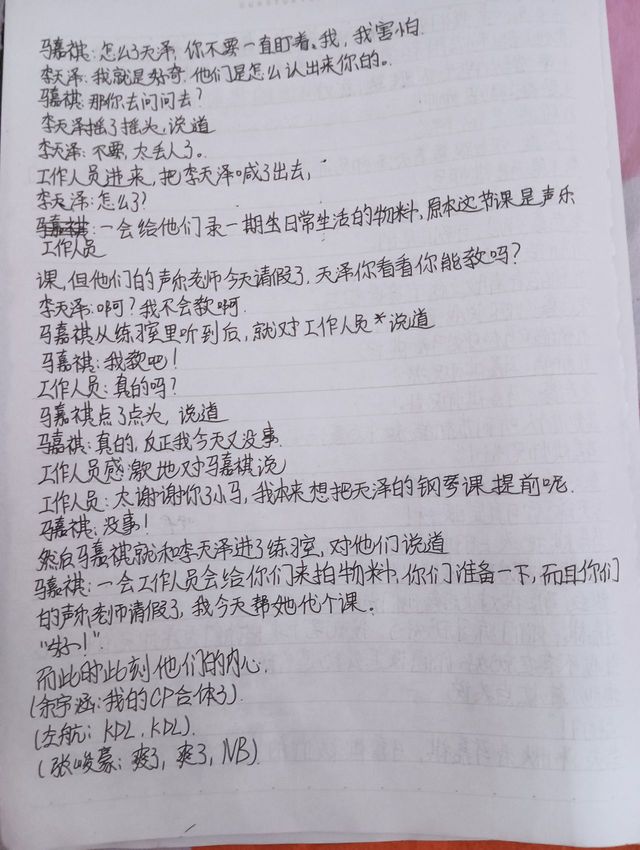 马嘉祺：怎么了天泽，你不要一直盯着。我，我害怕.
李天泽：我就是好奇，他们是怎么认出来你的。
马嘉祺：那你去问问去？
李天泽摇了摇头，说道
李天泽：不要，太丢人了。
工作人员进来，把李天泽喊了出去，
李天泽：怎么了？
马嘉祺：一会给他们录一期生日常生活的物料，原本这节课是声乐
工作人员
课，但他们的声乐老师今天请假了，天泽你看看你能教吗？
李天泽：啊？我不会教啊.
马嘉祺从练习室里听到后，就对工作人员*说道
马嘉祺：我教吧！
工作人员：真的吗？
马嘉祺点了点头，说道
马嘉祺：真的，反正我今天又没事.
工作人员感激地对马嘉祺说
工作人员：太谢谢你了小马，我本来想把天泽的钢琴课提前呢.
马嘉祺：没事！
然后马嘉祺就和李天泽进了练习室，对他们说道
马嘉祺：一会工作人员会给你们来拍物料，你们准备一下，而且你们
的声乐老师请假了，我今天帮她代个课。
“好！”
而此时此刻他们的内心.
(余宇涵：我的CP合体了).
(左航：KDL，KDL).
(张峻豪：爽了，爽了，NB).